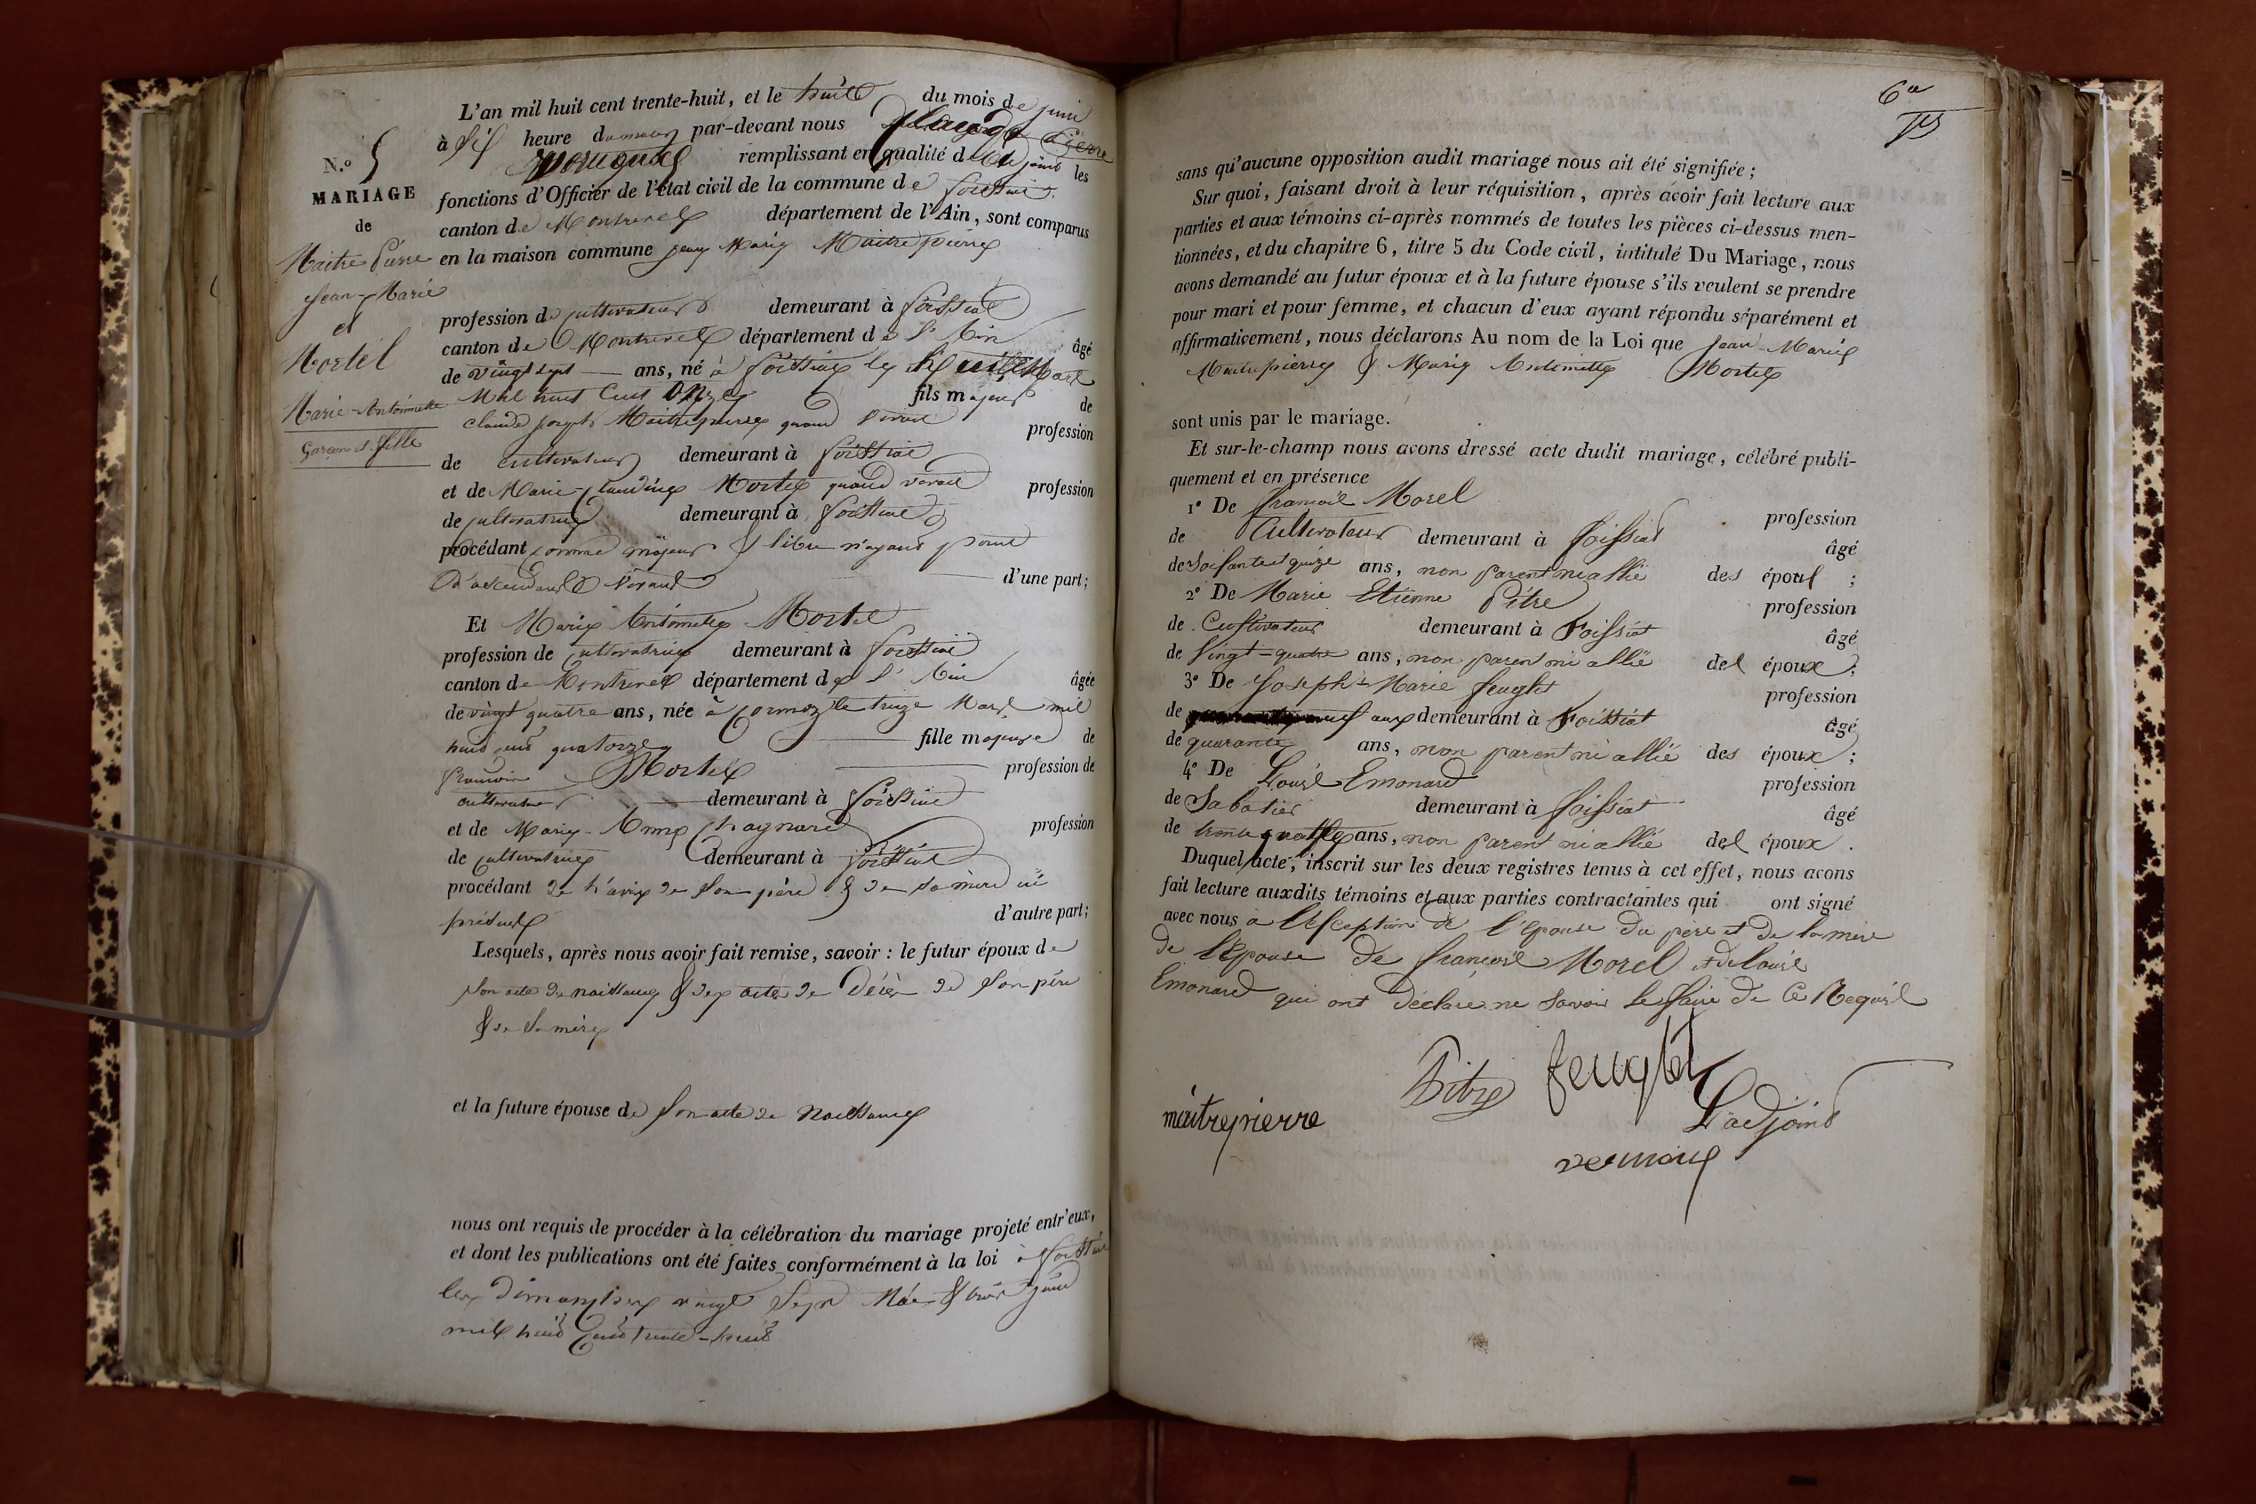 N.º 5
MARIAGE
de
Maitre Pierre
Jean-Marie
et
Mortel
Marie-Antoinette
Garçon et fille
L'an mil huit cent trente-huit, et le huit du mois de juin
à six heure du matin par-devant nous Claude Pierre
remplissant en qualité d'adjoint les
fonctions d'Officier de l'état civil de la commune de foissiat
canton de Montrevel département de l'Ain, sont comparus
en la maison commune jean Marie Maitrepierre
profession de cultivateur demeurant à foissiat
canton de Montrevel département de l'Ain âgé
de vingt sept ans, né à foissiat le Mars
Mil huit cent onze fils majeur de
claude joseph Maitrepierre quand vivait profession
de cultivateur demeurant à foissiat
et de Marie-claudine Mortel quand vivait profession
de cultivatrice demeurant à foissiat
procédant comme majeur & libre n'ayant point
d'ascendants vivant d'une part;
Et Marie Antoinette Mortel
profession de cultivatrice demeurant à foissiat
canton de Montrevel département de l'Ain âgée
de vingt quatre ans, née à cormoz le treize Mars mil
huit cent quatorze fille majeure de
françois Mortel profession de
cultivateur demeurant à foissiat
et de Marie-Anne chagnard profession
de cultivatrice demeurant à foissiat
procédant de l'avis de son père & de sa mère ici
présents d'autre part;
Lesquels, après nous avoir fait remise, savoir : le futur époux de
son acte de naissance & des actes de décès de son père
& de sa mère
et la future épouse de son acte de naissance
nous ont requis de procéder à la célébration du mariage projeté entr'eux,
et dont les publications ont été faites conformément à la loi à foissiat
les dimanches vingt sept Mai & trois juin
mil huit cent trente-huit
sans qu'aucune opposition audit mariage nous ait été signifiée ;
Sur quoi, faisant droit à leur réquisition, après avoir fait lecture aux
parties et aux témoins ci-après nommés de toutes les pièces ci-dessus men-
tionnées, et du chapitre 6, titre 5 du Code civil, intitulé Du Mariage, nous
avons demandé au futur époux et à la future épouse s'ils veulent se prendre
pour mari et pour femme, et chacun d'eux ayant répondu séparément et
affirmativement, nous déclarons Au nom de la Loi que Jean-Marie
Maitrepierre & Marie Antoinette Mortel
sont unis par le mariage.
Et sur-le-champ nous avons dressé acte dudit mariage, célébré publi-
quement et en présence
1º De françois Morel profession
de Cultivateur demeurant à foissiat âgé
de soisante et quinze ans, non parent ni allié des époux ;
2º De Marie Etienne Pitre profession
de Cultivateur demeurant à Foissiat âgé
de Vingt-quatre ans, non parent ni allié des époux ;
3º De Joseph-Marie feuglet profession
de demeurant à Foissiat âgé
de quarante ans, non parent ni allié des époux ;
4º De Louis Emonard profession
de Sabotier demeurant à foissiat âgé
de trente quatre ans, non parent ni allié des époux.
Duquel acte, inscrit sur les deux registres tenus à cet effet, nous avons
fait lecture auxdits témoins et aux parties contractantes qui ont signé
avec nous à l'exception de l'épouse du père et de la mère
de l'épouse de françois Morel et de Louis
Emonard qui ont déclaré ne savoir le faire de ce Requis
Pitre feuglet
maitrepierre L'adjoint